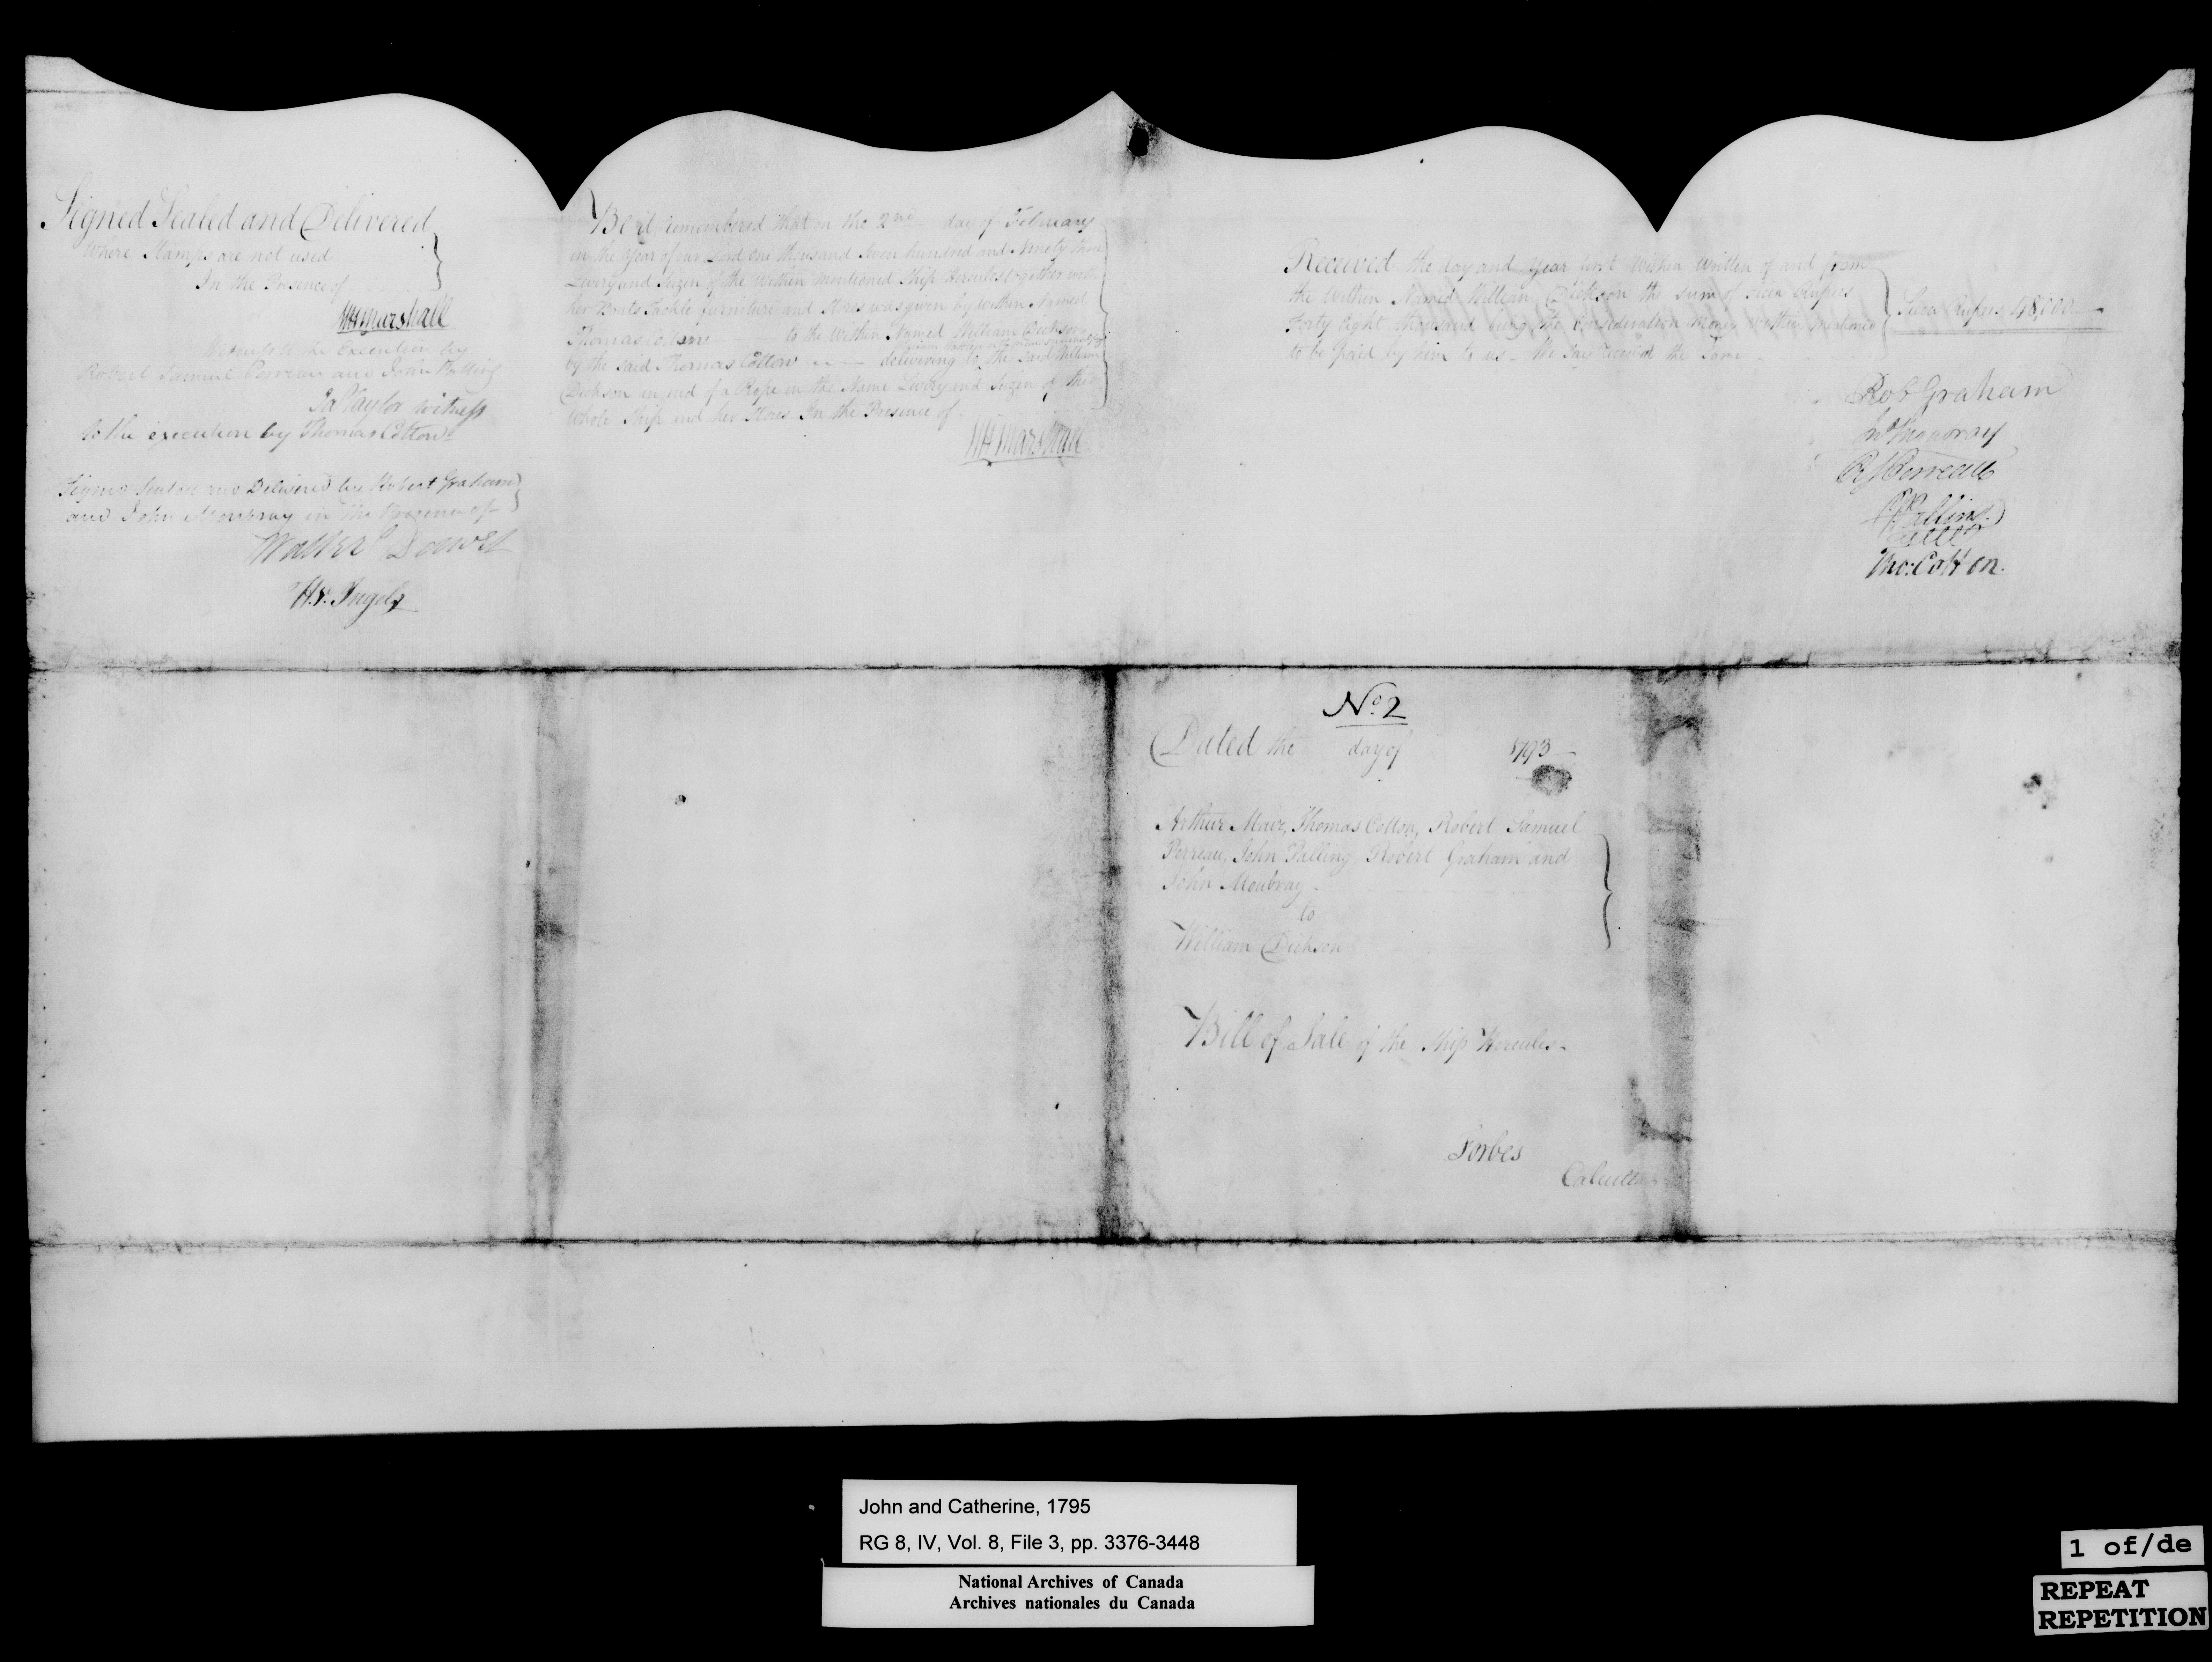 Signed Sealed and Delivered
Where Stamps are not used
In the Presence of
WH Marshall
Witness to the Execution by
Robert Samuel Perreau and John Palling
Jas Taylor witness
to the execution by Thomas Cotton
Signed Sealed and Delivered by Robert Graham
and John Moubray in the Presence of
Walter Dowet
Hy. Ingels
Be it remembered that on the 2nd day of February
in the Year of our Lord one thousand Seven hundred and Ninety three
Livery and Seizen of the Within mentioned Ship Hercules together with
her Boats Tackle furniture and Stores was given by within Named
Thomas Cotton to the Within Named William Dickson
by the said Thomas Cotton delivering to the Said William
Dickson an end of a Rope in the Name Livery and Seizen of the
Whole Ship and her Stores In the Presence of
WH Marshall
Received the day and Year first Within Written of and from
the Within Named William Dickson the sum of Sicca Rupees
Forty Eight thousand being the Consideration Money within mentioned
to be paid by him to us - We say received the Same
Sicca Rupees 48,000
Rob Graham
Jno Moubray
R S Perreau
J Palling
Tho: Cotton.
No. 2
Dated the day of 1793
Arthur Mair, Thomas Cotton, Robert Samuel
Perreau, John Palling, Robert Graham and
John Moubray
to
William Dickson
Bill of Sale of the Ship Hercules
Forbes
Calcutta
John and Catherine, 1795
RG 8, IV, Vol. 8, File 3, pp. 3376-3448
National Archives of Canada
Archives nationales du Canada
1 of/de
REPEAT
REPETITION